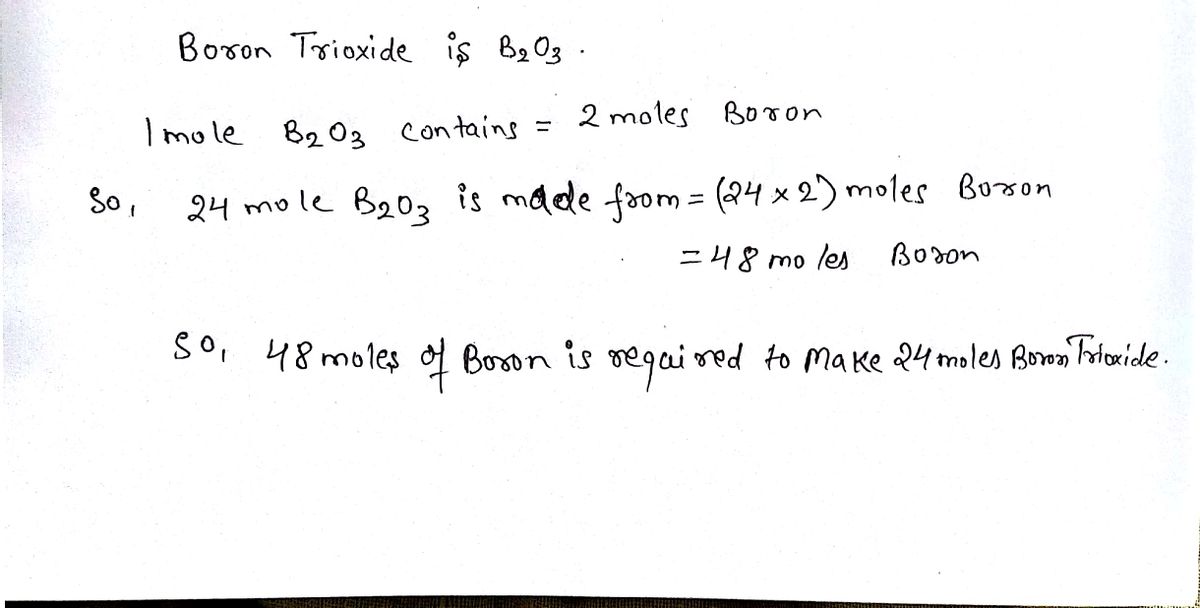 Boron Trioxide is B₂O₃.
1 mole B₂O₃ contains = 2 moles Boron
So, 24 mole B₂O₃ is made from = (24 × 2) moles Boron
= 48 moles Boron
So, 48 moles of Boron is required to Make 24 moles Boron Trioxide.